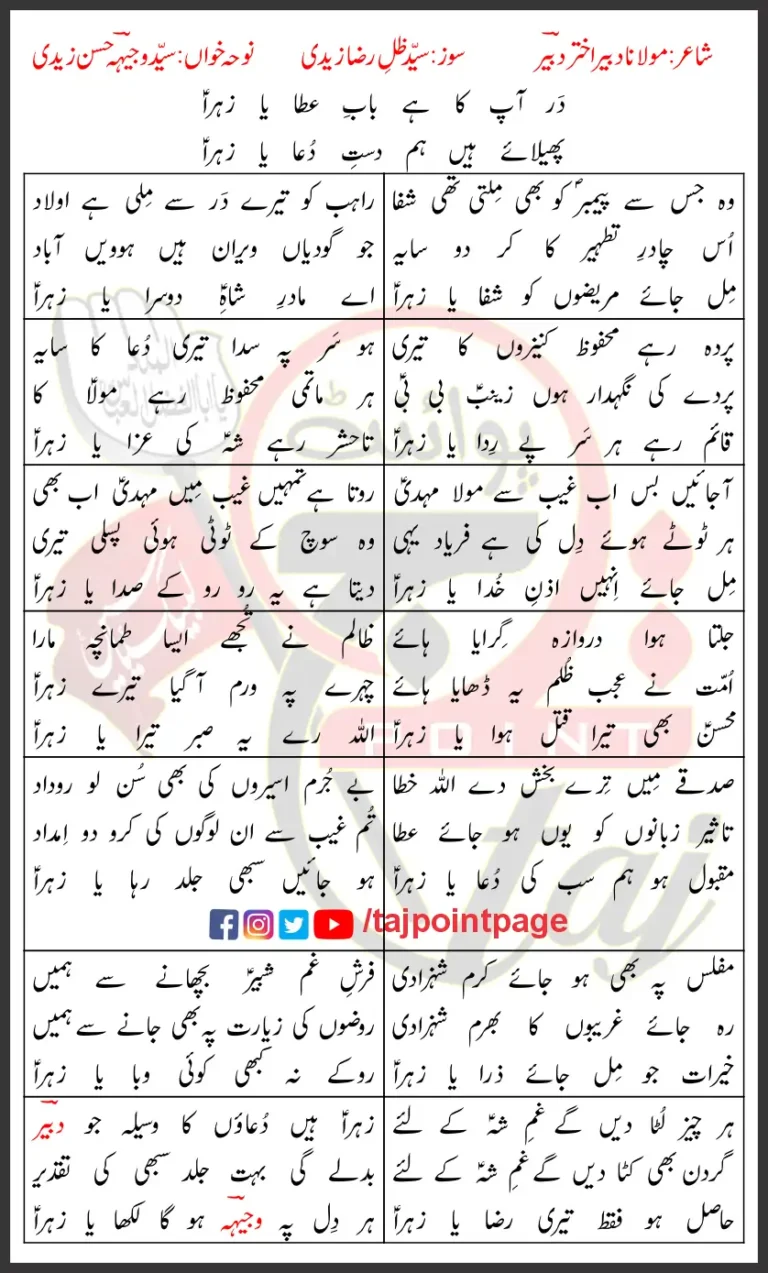 شاعر: مولانا دبیر اختر دبیرؔ سوز: سیّد ظلِ رضا زیدی نوحہ خواں: سیّد وجیہہؔ حسن زیدی
دَر آپ کا ہے بابِ عطا یا زہراؑ
پھیلائے ہیں ہم دستِ دُعا یا زہراؑ
وہ جس سے پیمبرؐ کو بھی مِلتی تھی شفا
اُس چادرِ تطہیر کا کر دو سایہ
مِل جائے مریضوں کو شفا یا زہراؑ
راہب کو تیرے دَر سے مِلی ہے اولاد
جو گودیاں ویران ہیں ہوویں آباد
اے مادرِ شاہِؑ دوسرا یا زہراؑ
پردہ رہے محفوظ کنیزوں کا تیری
پردے کی نگہدار ہوں زینبؑ بی بیؑ
قائم رہے ہر سَر پے رِدا یا زہراؑ
ہو سَر پہ سدا تیری دُعا کا سایہ
ہر ماتمی محفوظ رہے مولاؑ کا
تاحشر رہے شہؑ کی عزا یا زہراؑ
آجائیں بس اب غیب سے مولا مہدیؑ
ہر ٹوٹے ہوئے دِل کی ہے فریاد یہی
مِل جائے اِنہیں اذنِ خُدا یا زہراؑ
روتا ہے تمہیں غیب مِیں مہدیؑ اب بھی
وہ سوچ کے ٹوٹی ہوئی پسلی تیری
دیتا ہے یہ رو رو کے صدا یا زہراؑ
جلتا ہوا دروازہ گِرایا ہائے
اُمّت نے عجب ظُلم یہ ڈھایا ہائے
محسنؑ بھی تیرا قتل ہوا یا زہراؑ
ظالم نے تُجھے ایسا طمانچہ مارا
چہرے پہ ورم آگیا تیرے زہراؑ
اللہ رے یہ صبر تیرا یا زہراؑ
صدقے مِیں تِرے بخش دے اللہ خطا
تاثیر زبانوں کو یوں ہو جائے عطا
مقبول ہو ہم سب کی دُعا یا زہراؑ
بے جُرم اسیروں کی بھی سُن لو روداد
تُم غیب سے ان لوگوں کی کرو دو اِمداد
ہو جائیں سبھی جلد رہا یا زہراؑ
/tajpointpage
مفلس پہ بھی ہو جائے کرم شہزادی
رہ جائے غریبوں کا بھرم شہزادی
خیرات جو مِل جائے ذرا یا زہراؑ
فرشِ غمِ شبیرؑ بچھانے سے ہمیں
روضوں کی زیارت پہ بھی جانے سے ہمیں
روکے نہ کبھی کوئی وبا یا زہراؑ
ہر چیز لُٹا دیں گے غمِ شہؑ کے لئے
گردن بھی کٹا دیں گے غمِ شہؑ کے لئے
حاصل ہو فقط تیری رضا یا زہراؑ
زہراؑ ہیں دُعاؤں کا وسیلہ جو دبیرؔ
بدلے گی بہت جلد سبھی کی تقدیر
ہر دِل پہ وجیہہؔ ہو گا لکھا یا زہراؑ
پوائنٹ
POINT
taj